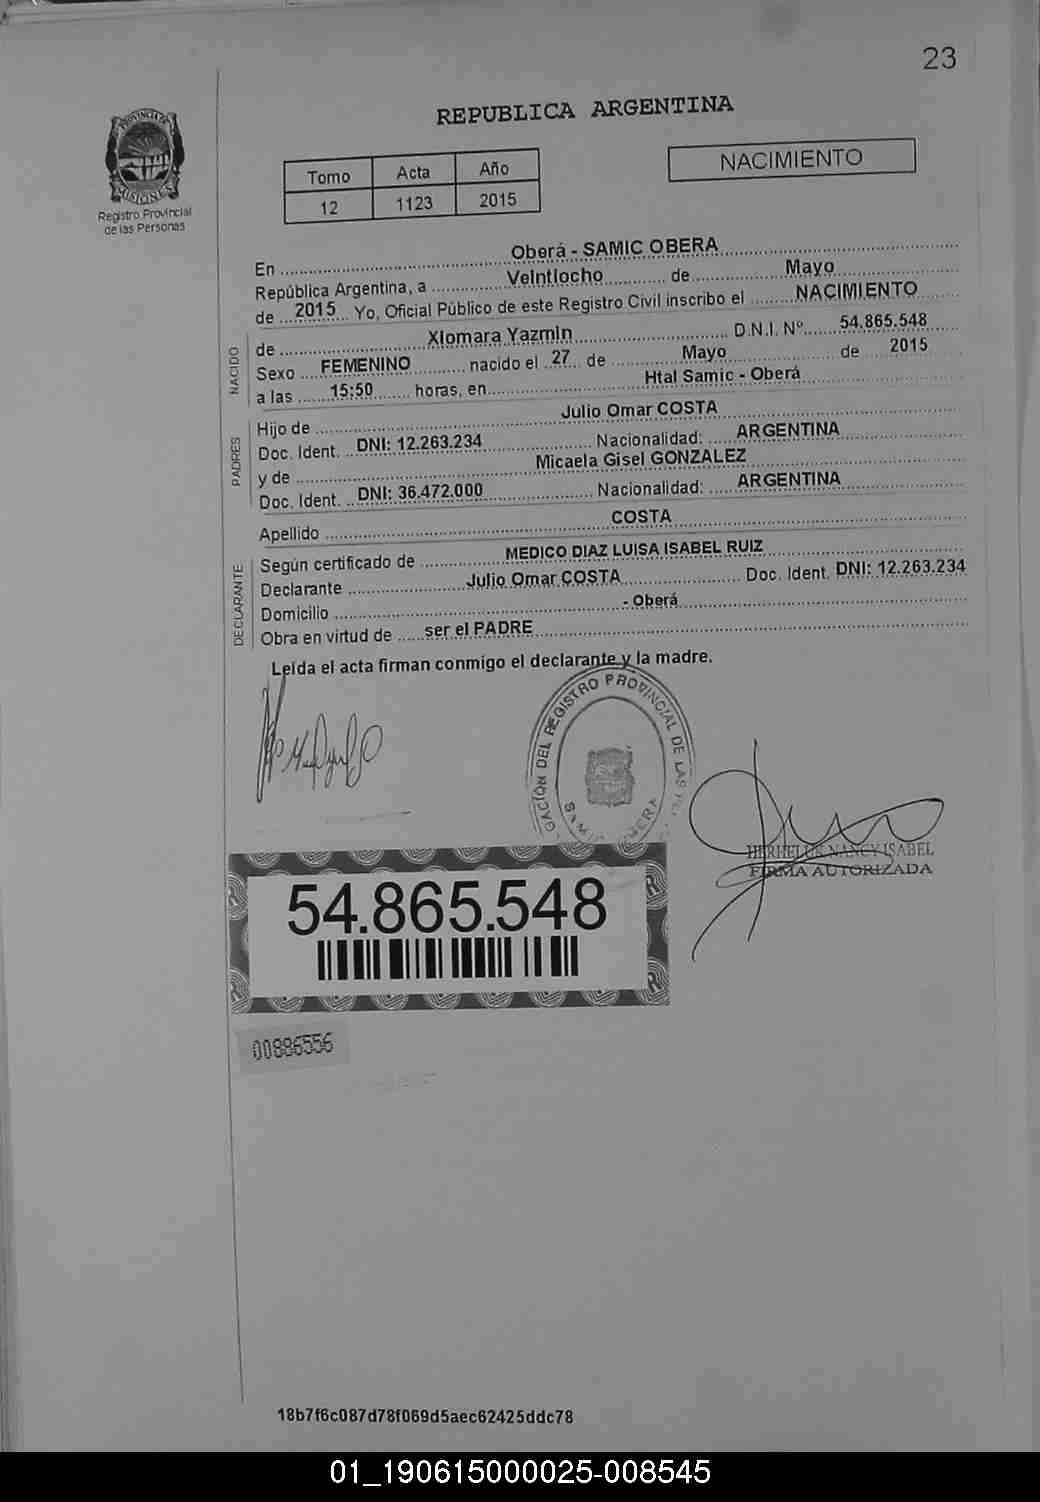 23
PROVINCIA DE
MISIONES
Registro Provincial
de las Personas
REPUBLICA ARGENTINA
Tomo Acta Año
12 1123 2015
NACIMIENTO
En Oberá - SAMIC OBERA
República Argentina, a Veintiocho de Mayo
de 2015 Yo, Oficial Público de este Registro Civil inscribo el NACIMIENTO
NACIDO
de Xiomara Yazmin D.N.I. Nº 54.865.548
Sexo FEMENINO nacido el 27 de Mayo de 2015
a las 15:50 horas, en Htal Samic - Oberá
PADRES
Hijo de Julio Omar COSTA
Doc. Ident. DNI: 12.263.234 Nacionalidad: ARGENTINA
y de Micaela Gisel GONZALEZ
Doc. Ident. DNI: 36.472.000 Nacionalidad: ARGENTINA
Apellido COSTA
DECLARANTE
Según certificado de MEDICO DIAZ LUISA ISABEL RUIZ
Declarante Julio Omar COSTA Doc. Ident. DNI: 12.263.234
Domicilio - Oberá
Obra en virtud de ser el PADRE
Leída el acta firman conmigo el declarante y la madre.
GACIÓN DEL REGISTRO PROVINCIAL DE LAS
SAMIC OBERA
NANCY ISABEL
FIRMA AUTORIZADA
54.865.548
00886556
18b7f6c087d78f069d5aec62425ddc78
01_190615000025-008545